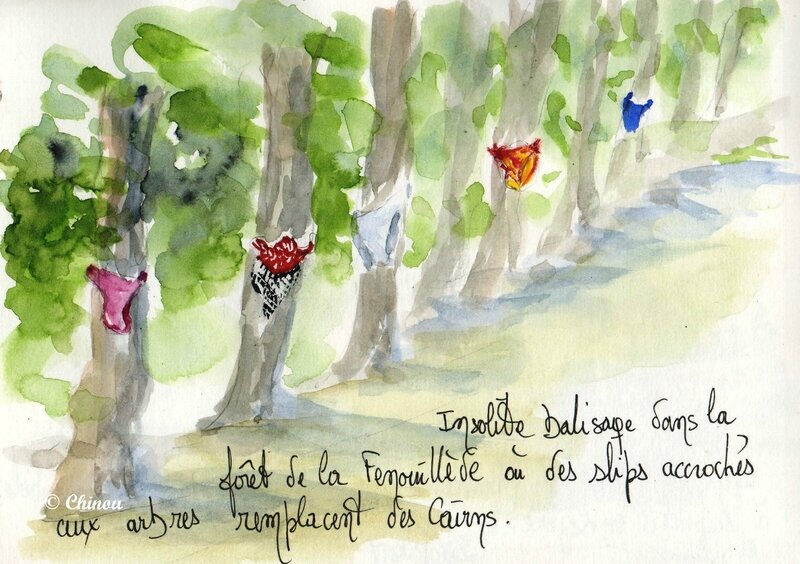 Insolite balisage dans la
forêt de la Fenouillède où des slips accrochés
aux arbres remplacent des Cairns.
© Chinou